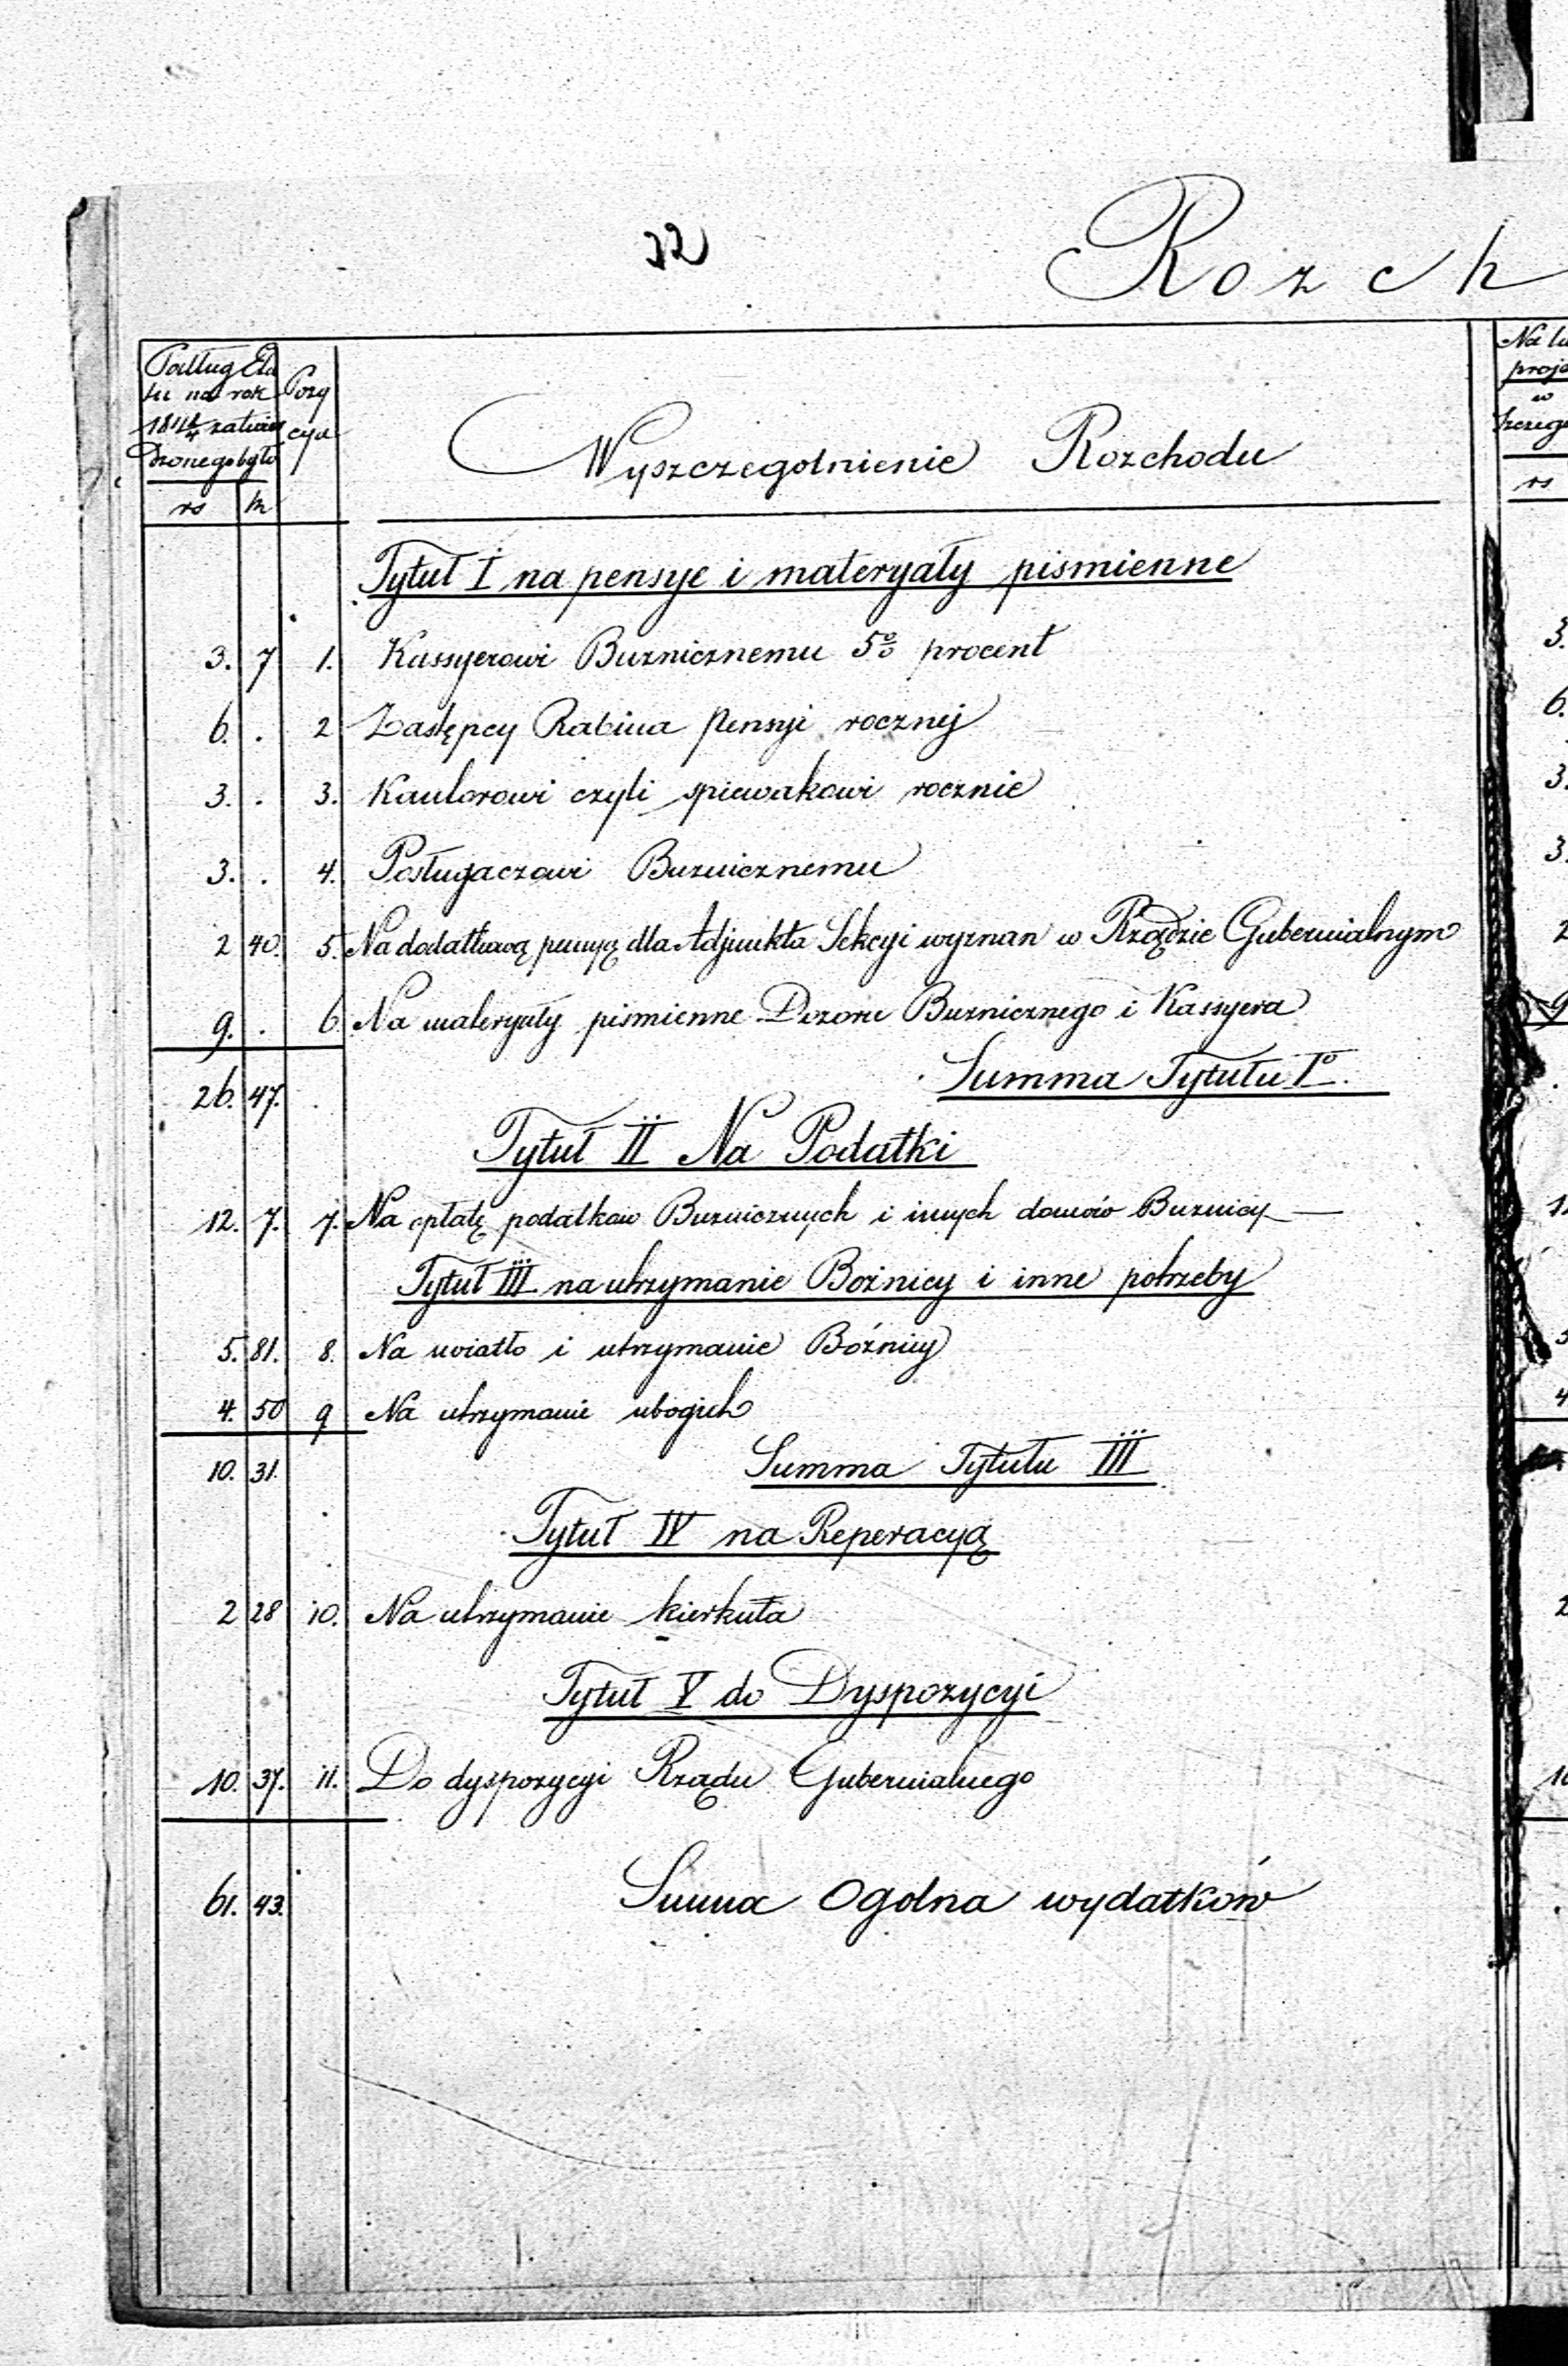 32
Rozch
Podług Eta
tu na rok
zatwier
dzonego było
rs k
Pozy
cya
Wyszczegolnienie Rozchodu
Na la
proje
w
szczego
rs
Tytuł I na pensye i materyały pismienne
3. 7 1. Kassyerowi Buznicznemu 5% procent 3.
6. . 2 Zastępcy Rabina pensyi rocznej 6.
3. . 3. Kantorowi czyli spiewakowi rocznie 3.
3. . 4. Posługaczowi Buznicznemu 3.
2 40. 5. Na dodatkową pensyą dla Adjunkta Sekcyi wyznan w Rządzie Gubernialnym 2
9. . 6. Na materyały pismienne Dozoru Buznicznego i Kassyera 9
26. 47. Summa Tytułu Io.
Tytuł II Na Podatki
12. 7. 7. Na opłatę podatkow Buznicznych i innych domów Buznicy —
Tytuł III na utrzymanie Bożnicy i inne potrzeby
5. 81. 8. Na swiatło i utrzymanie Bóżnicy 5
4. 50 9 Na utrzymanie ubogich 4
10. 31. Summa Tytułu III
Tytuł IV na Reperacyą
2 28 10. Na utrzymanie kierkuta 2
Tytuł V do Dyspozycyi
10. 37. 11. Do dyspozycyi Rządu Gubernialnego 10
61. 43. Summa Ogolna wydatków